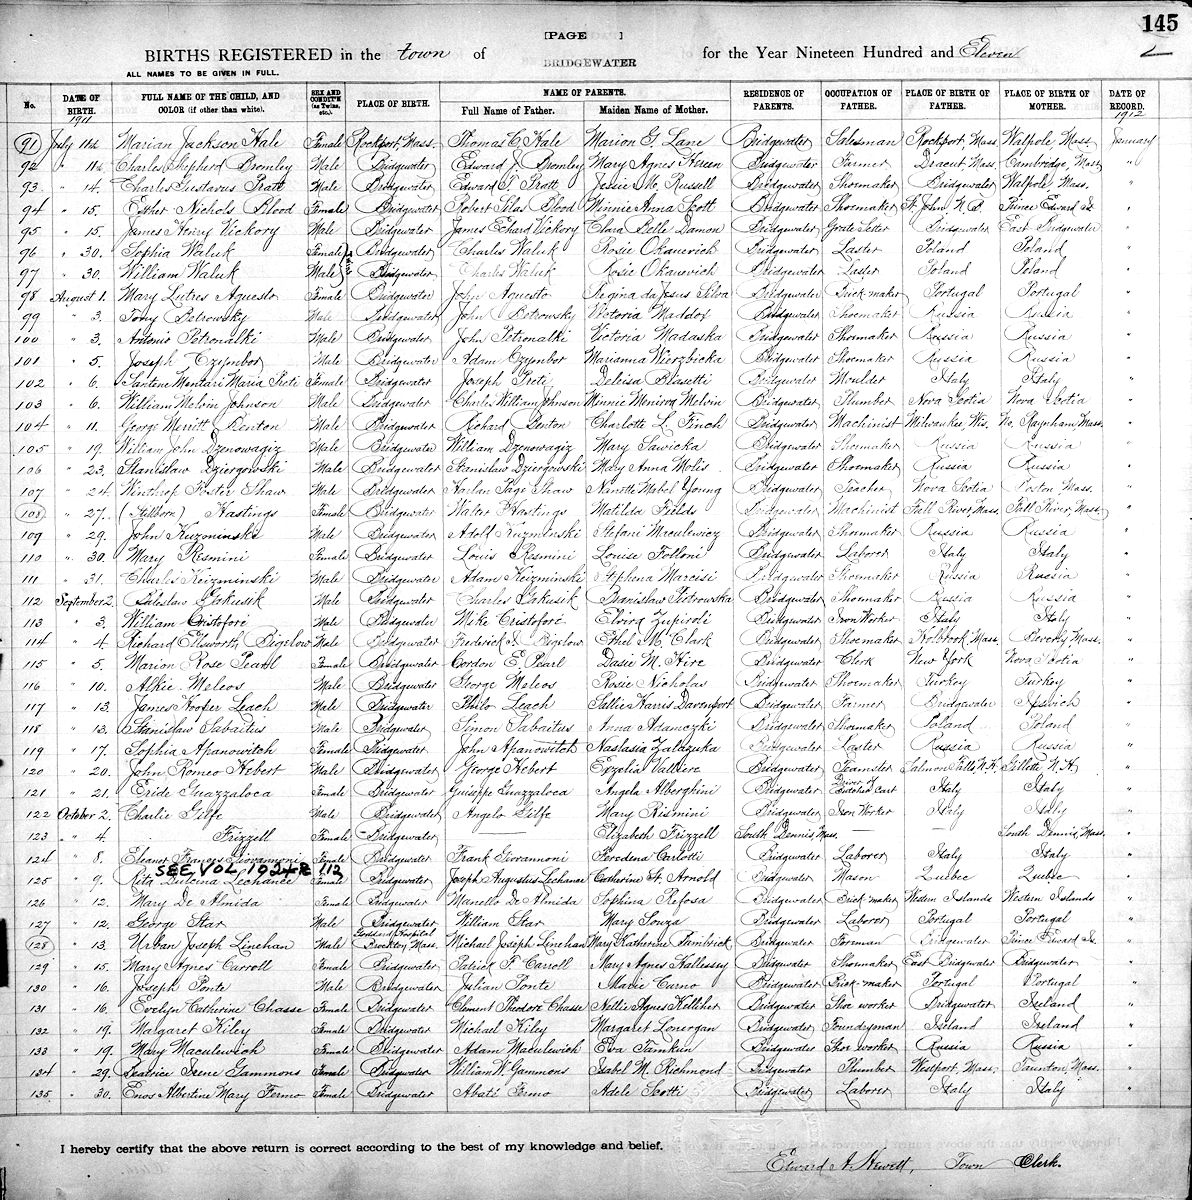 145
[PAGE ]
BIRTHS REGISTERED in the town of BRIDGEWATER for the Year Nineteen Hundred and Eleven
ALL NAMES TO BE GIVEN IN FULL.
No. DATE OF BIRTH. FULL NAME OF THE CHILD, AND COLOR (if other than white). SEX AND CONDIT'N (as Twins, etc.) PLACE OF BIRTH. NAME OF PARENTS. Full Name of Father. Maiden Name of Mother. RESIDENCE OF PARENTS. OCCUPATION OF FATHER. PLACE OF BIRTH OF FATHER. PLACE OF BIRTH OF MOTHER. DATE OF RECORD.
1911 1912
91 July 11th Marian Jackson Hale Female Rockport, Mass. Thomas C. Hale Marion G. Lane Bridgewater Salesman Rockport, Mass Walpole, Mass. January
92 " 11th Charles Shepherd Bromley Male Bridgewater Edward J. Bromley Mary Agnes Bridgewater Farmer Dracut, Mass. Cambridge, Mass "
93 " 14. Charles Gustavus Pratt Male Bridgewater Edward T. Pratt Jessie M. Russell Bridgewater Shoemaker Bridgewater Walpole, Mass. "
94 " 15. Esther Nichols Blood Female Bridgewater Robert Silas Blood Minnie Anna Scott Bridgewater Shoemaker St. John N. B. Prince Edward Is. "
95 " 15. James Henry Vickory Male Bridgewater James Vickory Clara Belle Damon Bridgewater Grate Setter Bridgewater East Bridgewater "
96 " 30. Sophia Waluk Female Twins Bridgewater Charles Waluk Rosie Okanevich Bridgewater Laster Poland Poland "
97 " 30. William Waluk Male Bridgewater Charles Waluk Rosie Okanevich Bridgewater Laster Poland Poland "
98 August 1. Mary Lutres Aguesto Female Bridgewater John Aguesto Regina da Jesus Silva Bridgewater Brick-maker Portugal Portugal "
99 " 3. Tony Botrowsky Male Bridgewater John Botrowsky Victoria Maddox Bridgewater Shoemaker Russia Russia "
100 " 3. Antonio Petronalki Male Bridgewater John Petronalki Victoria Madaska Bridgewater Shoemaker Russia Russia "
101 " 5. Joseph Czymbor Male Bridgewater Adam Czymbor Marianna Wierzbicka Bridgewater Shoemaker Russia Russia "
102 " 6. Santene Mentari Maria Preti Female Bridgewater Joseph Preti Delvisa Biasetti Bridgewater Moulder Italy Italy "
103 " 6. William Melvin Johnson Male Bridgewater Charles William Johnson Minnie Menirva Melvin Bridgewater Plumber Nova Scotia Nova Scotia "
104 " 11. George Merritt Benton Male Bridgewater Richard Benton Charlotte L. Finch Bridgewater Machinist Milwaukee, Wis. No. Raynham, Mass. "
105 " 19. William John Dzenowagiz Male Bridgewater William Dzenowagiz Mary Sawicka Bridgewater Shoemaker Russia Russia "
106 " 23. Stanislaw Dziergowski Male Bridgewater Stanislaw Dziergowski Mary Anna Molis Bridgewater Shoemaker Russia Russia "
107 " 24. Winthrop Foster Shaw Male Bridgewater Harlan Page Shaw Ninette Mabel Young Bridgewater Teacher Nova Scotia Boston Mass. "
108 " 27. (Stillborn) Hastings Female Bridgewater Walter Hastings Matilda Fields Bridgewater Machinist Fall River, Mass. Fall River, Mass. "
109 " 29. John Kuzmenski Male Bridgewater Adolf Kuzmenski Stefani Maculewicz Bridgewater Shoemaker Russia Russia "
110 " 30. Mary Resmini Female Bridgewater Louis Resmini Louise Folloni Bridgewater Laborer Italy Italy "
111 " 31. Charles Keizminski Male Bridgewater Adam Keizminski Stephena Marcisi Bridgewater Shoemaker Russia Russia "
112 September 2. Boleslaw Gokusik Male Bridgewater Charles Gokusik Branislaw Piotrowska Bridgewater Shoemaker Russia Russia "
113 " 3. William Cristofori Male Bridgewater Mike Cristofori Elvira Zupiroli Bridgewater Iron Worker Italy Italy "
114 " 4. Richard Ellsworth Bigelow Male Bridgewater Frederick S. Bigelow Ethel M. Clark Bridgewater Shoemaker Holbrook, Mass. Beverly, Mass. "
115 " 5. Marion Rose Pearl Female Bridgewater Gordon E. Pearl Dasie M. Hire Bridgewater Clerk New York Nova Scotia "
116 " 10. Alkie Meleos Male Bridgewater George Meleos Rosie Nicholas Bridgewater Shoemaker Turkey Turkey "
117 " 13. James Hooper Leach Male Bridgewater Philo Leach Sallie Harris Davenport Bridgewater Farmer Bridgewater Ipswich "
118 " 13. Stanislaw Sabaitus Male Bridgewater Simon Sabaitus Anna Adamczki Bridgewater Shoemaker Poland Poland "
119 " 17. Sophia Apanowitch Female Bridgewater John Apanowitch Nastasia Zalazuka Bridgewater Laster Russia Russia "
120 " 20. John Romeo Hebert Male Bridgewater George Hebert Eyzelia Valliere Bridgewater Teamster Salmon Falls, N.H. N. H. "
121 " 21. Eride Guazzaloca Female Bridgewater Guiseppe Guazzaloca Angela Alberghini Bridgewater Driver of Butcher Cart Italy Italy "
122 October 2. Charlie Gilfe Male Bridgewater Angelo Gilfe Mary Rismini Bridgewater Iron Worker Italy Italy "
123 " 4. Frizzell Female Bridgewater — Elizabeth Frizzell South Dennis, Mass. — — South Dennis, Mass. "
124 " 8. Eleanor Frances Giovannoni Female Bridgewater Frank Giovannoni Peredena Carlotti Bridgewater Laborer Italy Italy "
SEE VOL. 1924 P. 113
125 " 9. Rita Dulcina Lechance Female Bridgewater Joseph Augustus Lechance Catherine St. Arnold Bridgewater Mason Quebec Quebec "
126 " 12. Mary De Almida Female Bridgewater Manello De Almida Sophina Refosa Bridgewater Brick-maker Western Islands Western Islands "
127 " 12. George Star Male Bridgewater William Star Mary Souza Bridgewater Laborer Portugal Portugal "
128 " 13. Urban Joseph Linehan Male Goddard Hospital Brockton, Mass. Michael Joseph Linehan Mary Katherine Fambrick Bridgewater Forman Bridgewater Prince Edward Is. "
129 " 15. Mary Agnes Carroll Female Bridgewater Patrick F. Carroll Mary Agnes Hallessey Bridgewater Shoemaker East Bridgewater Bridgewater "
130 " 16. Joseph Ponte Male Bridgewater Julian Ponte Marie Carno Bridgewater Brick-maker Portugal Portugal "
131 " 16. Evelyn Catherine Chasse Female Bridgewater Clement Theodore Chasse Nellie Agnes Kelliher Bridgewater Shoe worker Bridgewater Ireland "
132 " 19. Margaret Kiley Female Bridgewater Michael Kiley Margaret Lonergan Bridgewater Foundryman Ireland Ireland "
133 " 19. Mary Maculewich Female Bridgewater Adam Maculewich Eva Tamkun Bridgewater Shoe worker Russia Russia "
134 " 29. Beatrice Irene Gammons Female Bridgewater William W. Gammons Isabel M. Richmond Bridgewater Plumber Westport, Mass. Taunton, Mass. "
135 " 30. Enos Albertine Mary Fermo Female Bridgewater Abati Fermo Adele Scotti Bridgewater Laborer Italy Italy "
I hereby certify that the above return is correct according to the best of my knowledge and belief.
Edward A. Hewett, Town Clerk.